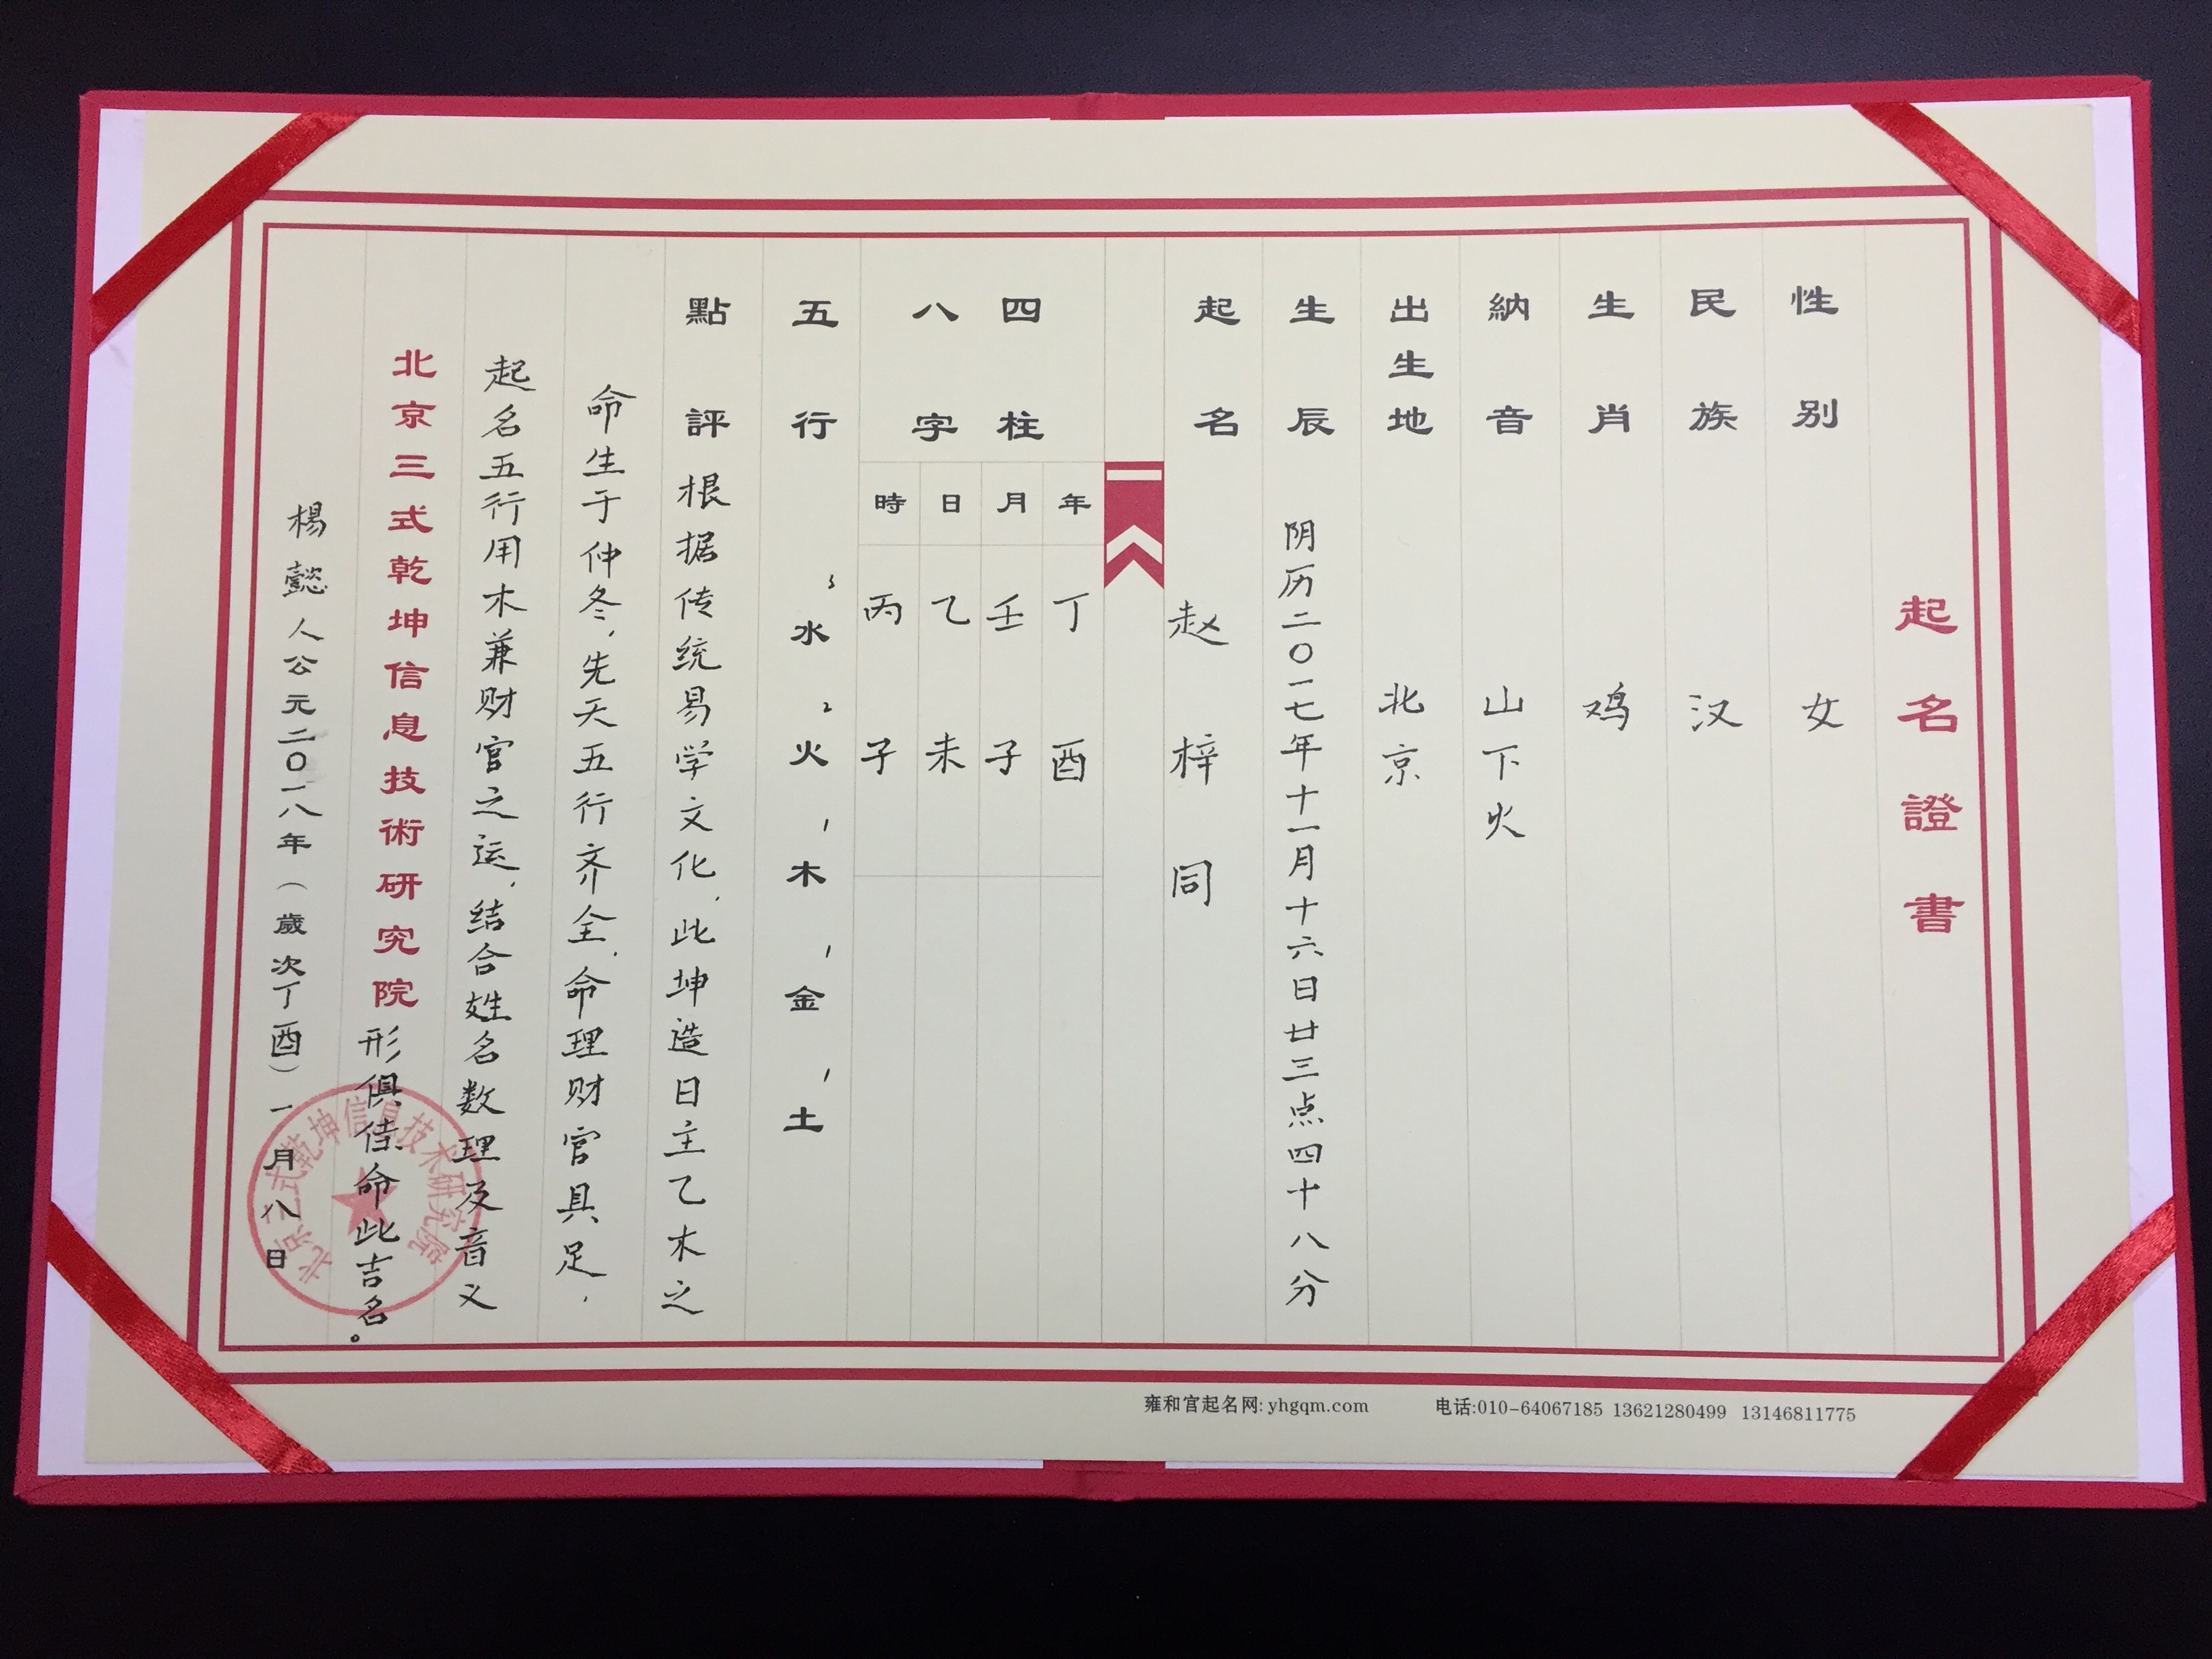 起名證書
性别 女
民族 汉
生肖 鸡
納音 山下火
出生地 北京
生辰 阴历二〇一七年十一月十六日廿三点四十八分
起名 赵梓同
四柱
八字
年 丁酉
月 壬子
日 乙未
時 丙子
五行 3水 2火 1木 1金 1土
點評 根据传统易学文化,此坤造日主乙木之
命生于仲冬,先天五行齐全,命理财官具足,
起名五行用木兼财官之运,结合姓名数理及音义
形俱佳命此吉名。
北京三式乾坤信息技術研究院
楊懿人公元二〇一八年(歲次丁酉)一月八日
北京三式乾坤信息技术研究院
雍和宫起名网: yhgqm.com 电话:010-64067185 13621280499 13146811775